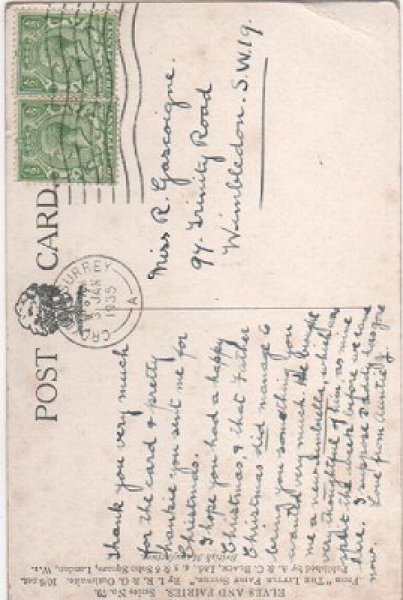 POST CARD
SURREY
3 JAN
1935
A
Miss R. Gascoigne.
97. Trinity Road
Wimbledon. S.W.19.
Thank you very much
for the card & pretty
hankie you sent me for
Christmas.
I hope you had a happy
Christmas, & that Father
Christmas did manage to
bring you something you
wanted very much. He
me a new umbrella, which was
very thoughtful of him, as mine
split the week before we came
here. I suppose has gone
now. Love from Auntie
ELVES AND FAIRIES. Series No. 79.
From "THE LITTLE FAIRY SISTER." By I. R. & G. Outhwaite. 10/6 net.
Published by A. & C. BLACK, Ltd., 4, 5 & 6 Soho Square, London, W.1.
British Manufacture